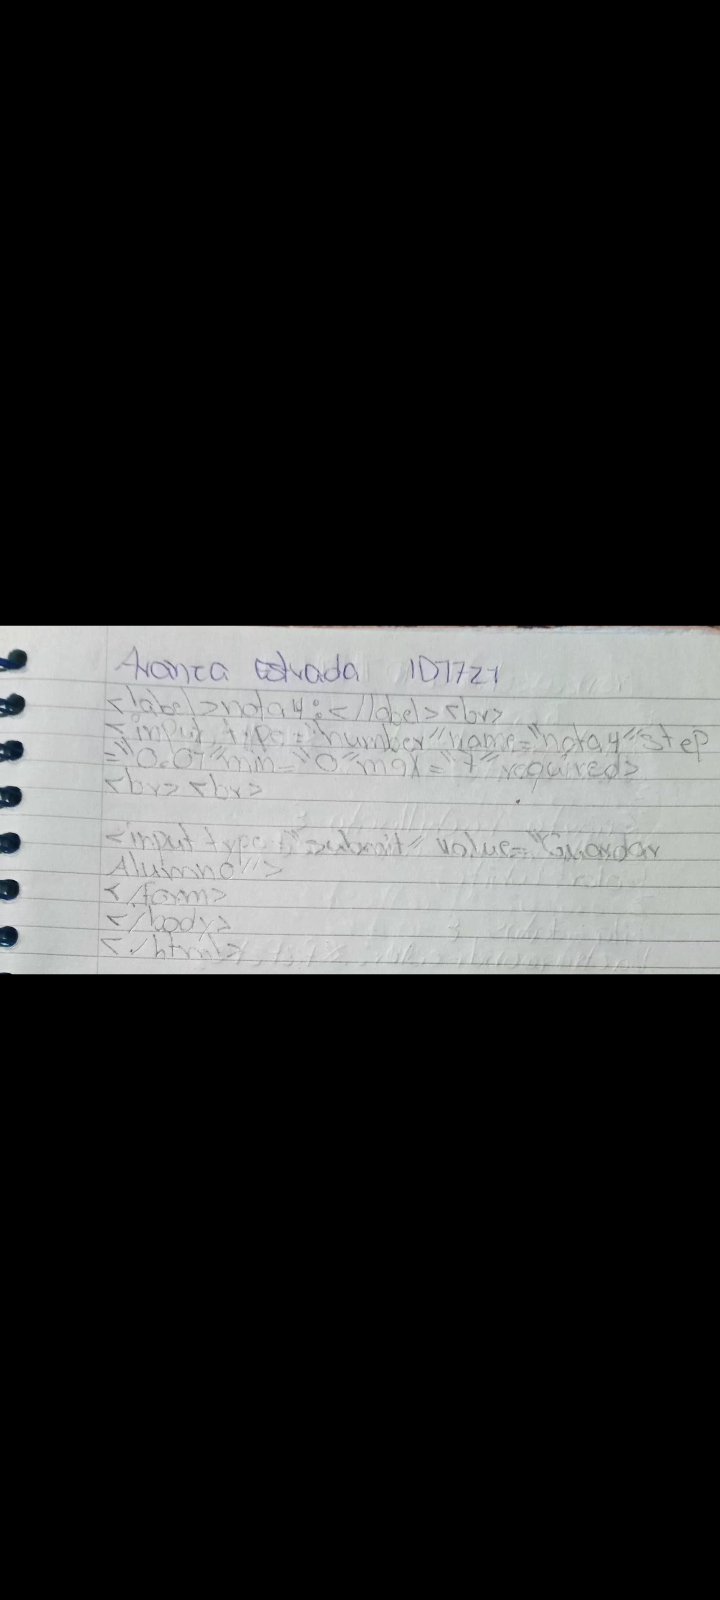 Estrada ID1721
<label>nota4:</label><br>
<input type="number" name="nota4" step
="0.01" min="0" max="7" required>
<br><br>
<input type="submit" value="Guardar
Alumno">
</form>
</body>
</html>